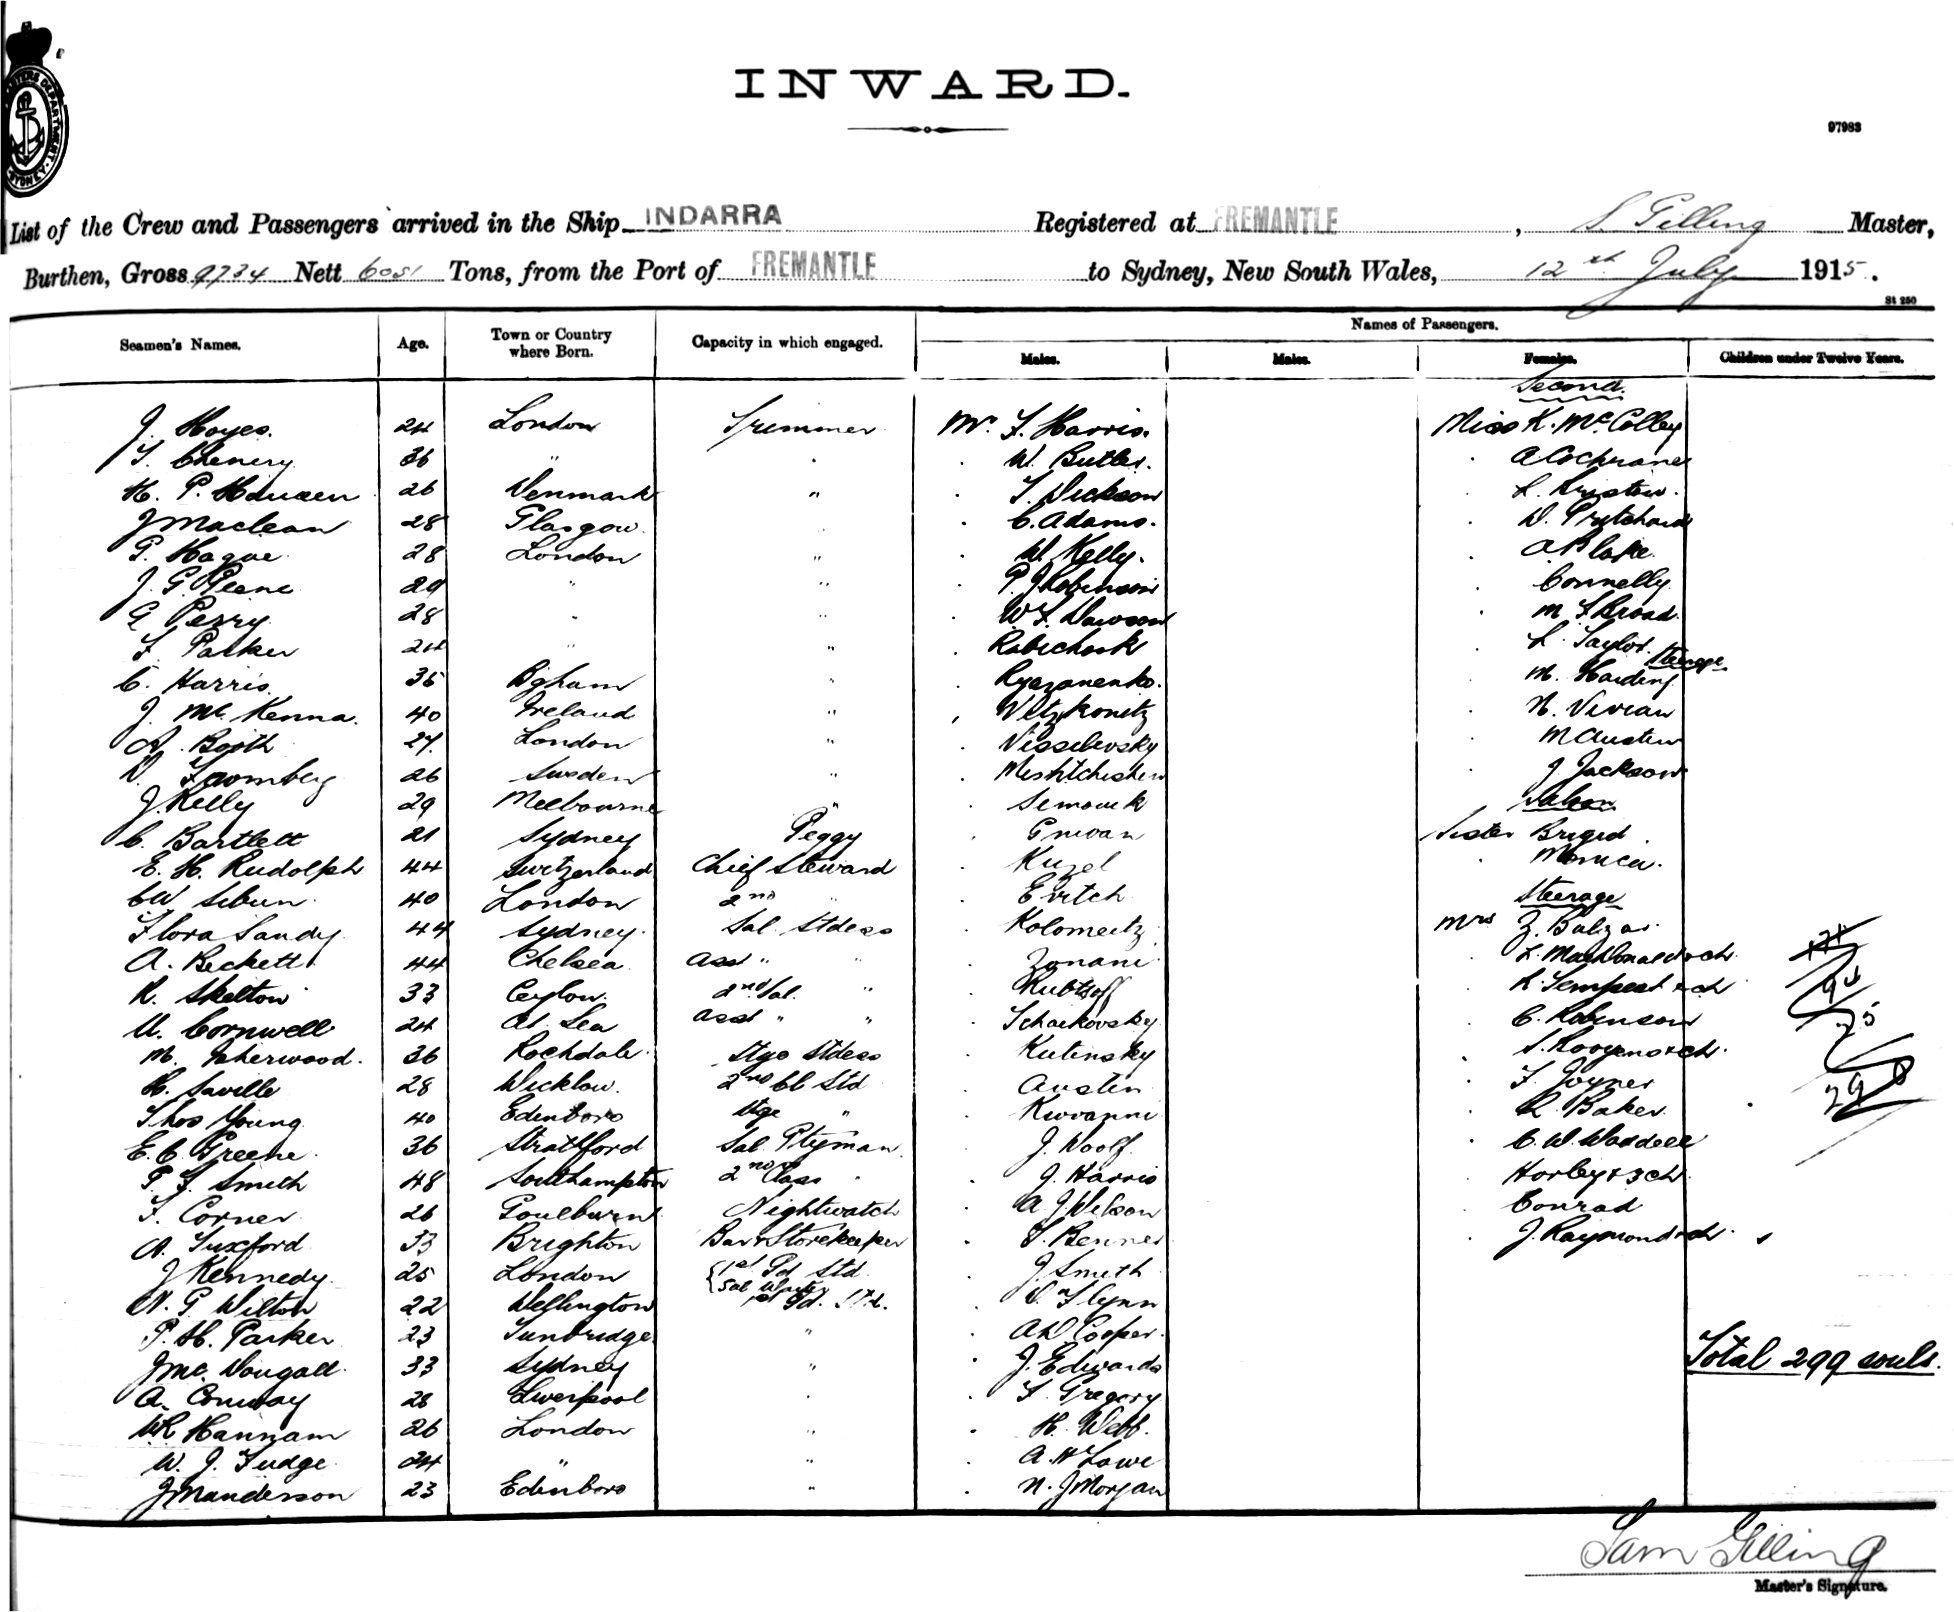 INWARD.
97983
List of the Crew and Passengers arrived in the Ship INDARRA Registered at FREMANTLE, S Gilling Master,
Burthen, Gross 9734 Nett 6051 Tons, from the Port of FREMANTLE to Sydney, New South Wales, 12th July 1915.
St 250
Seamen's Names. Age. Town or Country where Born. Capacity in which engaged. Names of Passengers.
Males. Males. Females. Children under Twelve Years.
Second.
J. Hayes. 24 London Trimmer Mr. F. Harris. Miss K. McColley
T. Chenery 36 " " W. Butler. A Cochrane
H. P. Hansen 26 Denmark " T. Dickson L.
J Maclean 28 Glasgow C. Adams. D. Pritchard
P. Hague 28 London " W. Kelly. A Blake
J. G. 29 " " P. J Robinson Connelly
G Perry 28 " " W F. Dawson M F Broad
F. Parker 24 " " L. Taylor
Steerage
C. Harris 35 " Ryazanenko. M. Harding
J. McKenna. 40 Ireland " N. Vivian
A. Booth London " M Austin
26 Sweden " J Jackson
J Kelly 29 Melbourne " Semonek
Saloon
C. Bartlett 21 Sydney Peggy Sister Brigid
E. H. Rudolph 44 Switzerland Chief Steward Kuzel " Monica.
C W 40 London 2nd " Evitch
Steerage
Flora Sandy 44 Sydney. Sal. Stdess Kolomeitz Mrs Z. Balzar
A. Beckett 44 Chelsea Asst " " Zonani L. MacDonald & ch.
K. Skelton 33 Ceylon. 2nd Sal. " Rubtzoff L. Tempest & ch
U. Cornwell 24 At Sea Asst " " Tchaikovsky C. Robinson
M. Isherwood. 36 Rochdale Stge Stdess Kutinsky S. & ch.
H. Saville 28 Wicklow. 2nd Cl Std Austin F. Joyner
Thos Young 40 Edenboro Stge " R. Baker
E. C. Greene. 36 Stratford Sal. Ptyman J. Woolf. C. W. Waddell
P. J. Smith 48 Southampton 2nd Class " J. Harris Horley & 3 ch
F. Corner 26 Goulburn Nightwatch A J Wilson Conrad
A. Tuxford 33 Brighton Bar & Storekeeper J. Raymond & ch.
J Kennedy 25 London 1st Gd Std J. Smith
Sal Waiter
N. G Wilton 22 Wellington 1st Gd. Std. D. Flynn
P. H. Parker 23 Tunbridge " A D Cooper.
J McDougall 33 Sydney " J. Edwards
Total 299 souls.
A. Conway 28 Liverpool " F. Gregory
W R Hannam 26 London " H. Webb.
W. J. Fudge 24 " " A. H Lowe
J Manderson 23 Edinboro " N. J Morgan
Sam Gilling
Master's Signature.